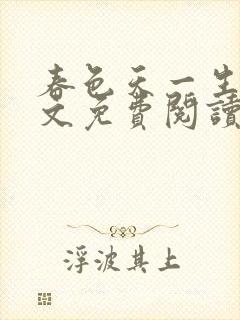 春色天一生
文免費閱讀
浮波其上